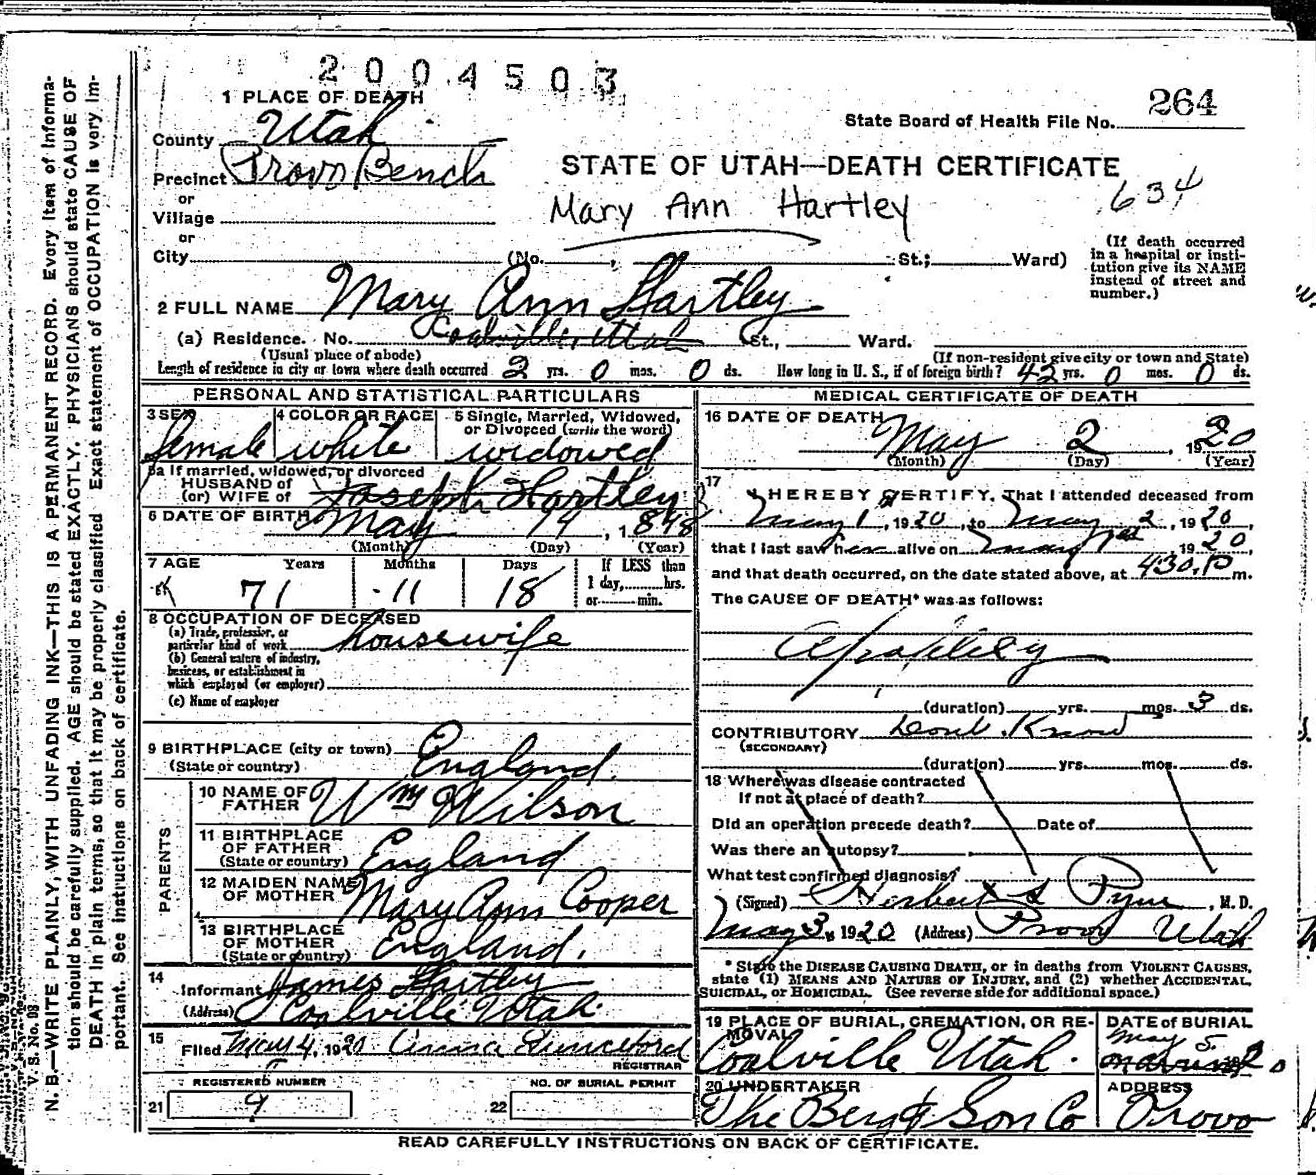 2004503
1 PLACE OF DEATH
264
State Board of Health File No.
County Utah
Precinct Provo Bench
STATE OF UTAH—DEATH CERTIFICATE
634
or
Village
Mary Ann Hartley
or
City (No. , St.; Ward)
(If death occurred in a hospital or institution give its NAME instead of street and number.)
2 FULL NAME Mary Ann Hartley
(a) Residence. No. Coalville, Utah St., Ward.
(Usual place of abode) (If non-resident give city or town and State)
Length of residence in city or town where death occurred 2 yrs. 0 mos. 0 ds. How long in U. S., if of foreign birth? 42 yrs. 0 mos. 0 ds.
PERSONAL AND STATISTICAL PARTICULARS
3 SEX 4 COLOR OR RACE 5 Single, Married, Widowed, or Divorced (write the word)
female white widowed
5a If married, widowed, or divorced
HUSBAND of
(or) WIFE of Joseph Hartley
6 DATE OF BIRTH May 14, 1848
(Month) (Day) (Year)
7 AGE Years Months Days If LESS than
71 11 18 1 day, hrs.
or min.
8 OCCUPATION OF DECEASED
(a) Trade, profession, or
particular kind of work housewife
(b) General nature of industry,
business, or establishment in
which employed (or employer)
(c) Name of employer
9 BIRTHPLACE (city or town)
(State or country) England
PARENTS
10 NAME OF
FATHER Wm Wilson
11 BIRTHPLACE
OF FATHER
(State or country) England
12 MAIDEN NAME
OF MOTHER Mary Ann Cooper
13 BIRTHPLACE
OF MOTHER
(State or country) England.
14
Informant James Hartley
(Address) Coalville Utah
15
Filed May 4, 1920
REGISTRAR
REGISTERED NUMBER NO. OF BURIAL PERMIT
21 9 22
MEDICAL CERTIFICATE OF DEATH
16 DATE OF DEATH May 2, 1920
(Month) (Day) (Year)
17
I HEREBY CERTIFY, That I attended deceased from
May 1, 1920, to May 2, 1920,
that I last saw her alive on May 1st 1920,
and that death occurred, on the date stated above, at 430 P m.
The CAUSE OF DEATH* was as follows:
Apoplexy
(duration) yrs. mos. 3 ds.
CONTRIBUTORY Dont Know
(SECONDARY)
(duration) yrs. mos. ds.
18 Where was disease contracted
If not at place of death?
Did an operation precede death? Date of
Was there an autopsy?
What test confirmed diagnosis?
(Signed) Herbert S Pyne, M. D.
May 3, 1920 (Address) Provo Utah
* State the DISEASE CAUSING DEATH, or in deaths from VIOLENT CAUSES,
state (1) MEANS AND NATURE OF INJURY, and (2) whether ACCIDENTAL,
SUICIDAL, or HOMICIDAL. (See reverse side for additional space.)
19 PLACE OF BURIAL, CREMATION, OR REMOVAL DATE of BURIAL
Coalville Utah. May 5. 20
20 UNDERTAKER ADDRESS
The Berg & Son Co Provo
READ CAREFULLY INSTRUCTIONS ON BACK OF CERTIFICATE.
V. S. No. 98
N. B.—WRITE PLAINLY, WITH UNFADING INK—THIS IS A PERMANENT RECORD. Every Item of Informa-
tion should be carefully supplied. AGE should be stated EXACTLY. PHYSICIANS should state CAUSE OF
DEATH in plain terms, so that it may be properly classified. Exact statement of OCCUPATION is very im-
portant. See instructions on back of certificate.